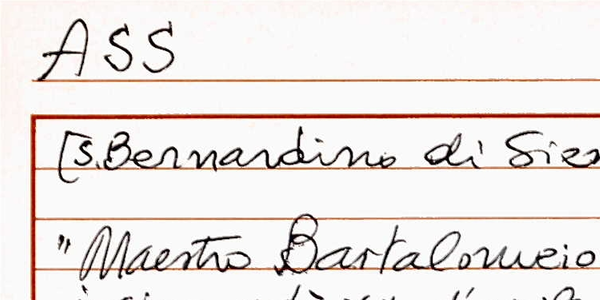 ASS
[S. Bernardino di
"Maestro Bartalomeio